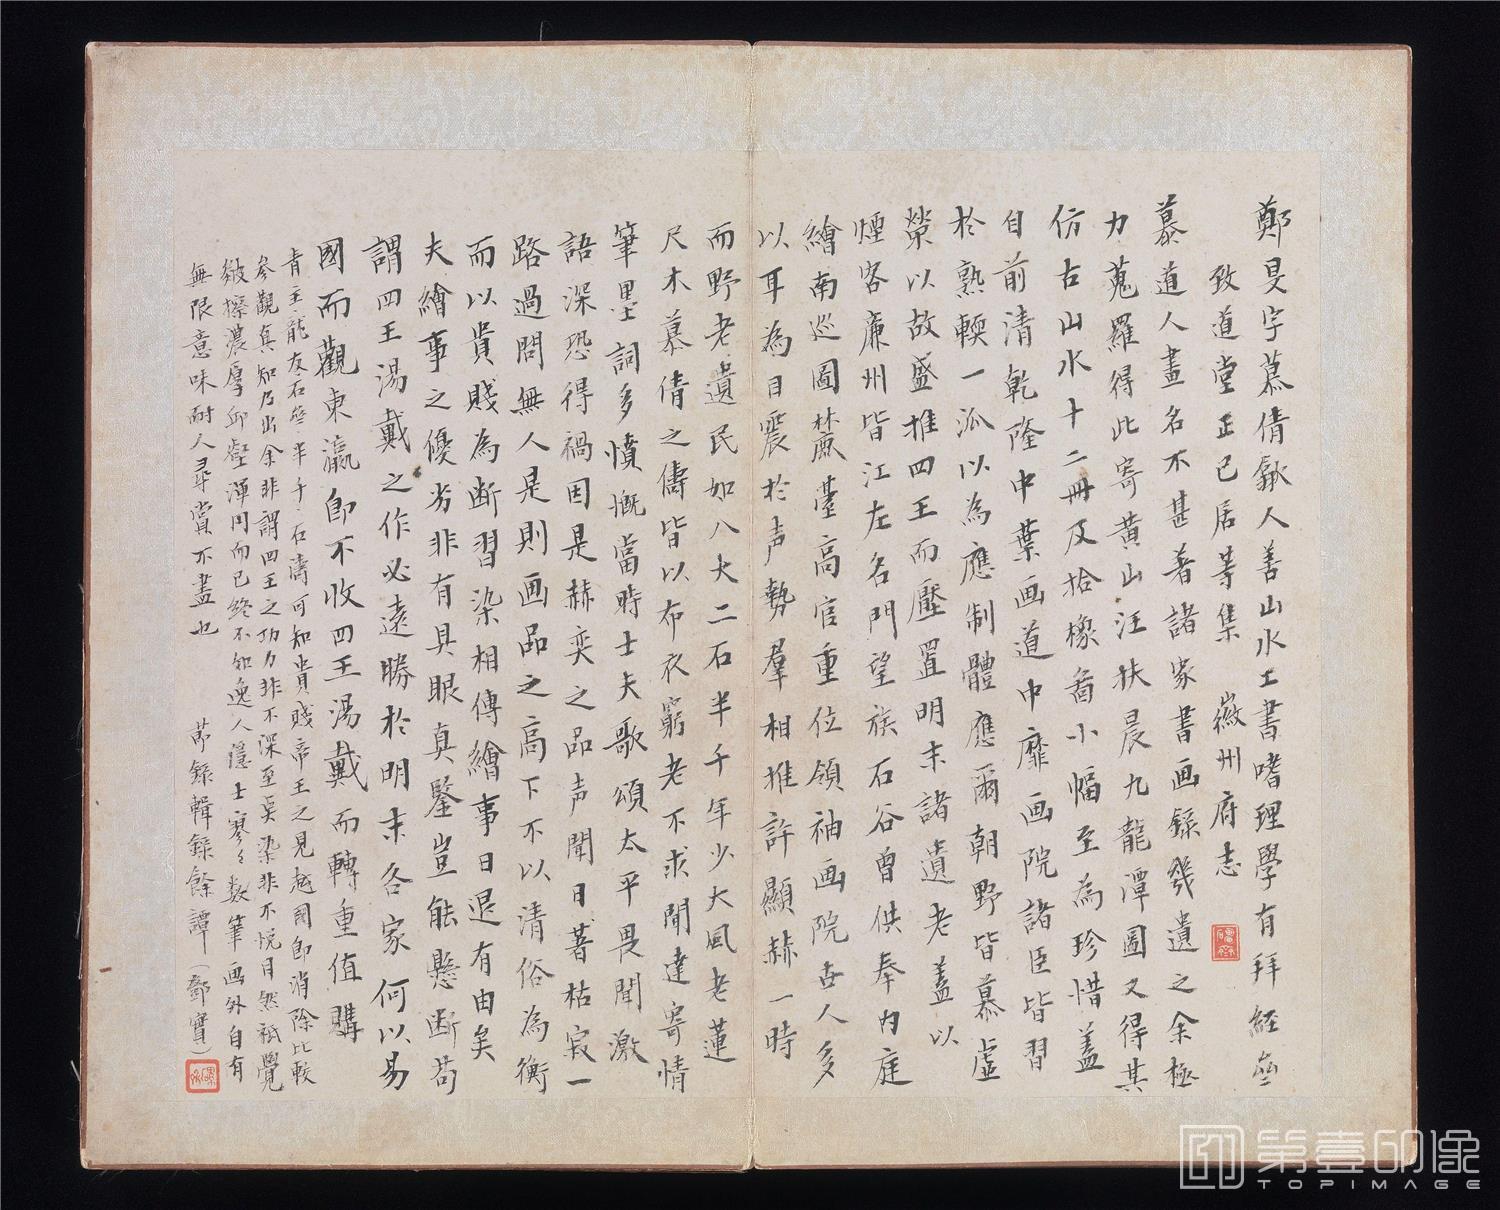 鄭旻字慕倩歙人善山水工書嗜理學有拜經齋
致道堂正己居等集　徽州府志
慕道人畫名不甚著諸家書画錄幾遺之余極
力蒐羅得此寄黃山汪扶晨九龍潭圖又得其
仿古山水十二冊及拾橡圖小幅至為珍惜蓋
自前清乾隆中葉画道中靡画院諸臣皆習
於熟輭一派以為應制體應爾朝野皆慕虛
榮以故盛推四王而壓置明末諸遺老蓋以
煙客廉州皆江左名門望族石谷曾供奉內庭
繪南巡圖麓臺高官重位領袖画院世人多
以耳為目震於声勢羣相推許顯赫一時
而野老遺民如八大二石半千年少大風老蓮
尺木慕倩之儔皆以布衣窮老不求聞達寄情
筆墨詞多憤慨當時士夫歌頌太平畏聞激
語深恐得禍因是赫奕之品声聞日著枯寂一
路過問無人是則画品之高下不以清俗為衡
而以貴賤為斷習染相傳繪事日退有由矣
夫繪事之優劣非有具眼真鑒豈能懸斷苟
謂四王湯戴之作必遠勝於明末各家何以易
國而觀東瀛即不收四王湯戴而轉重值購
青主龍友石齋半千石濤可知貴賤帝王之見越國即消除比較
參觀真知乃出余非謂四王之功力非不深至奚染非不悅目然祇覺
皴擦濃厚邱壑渾円而已終不如逸人隱士寥々数筆画外自有
無限意味耐人尋賞不盡也　節錄輯錄餘譚（鄧實）
TOPIMAGE
第壹印像